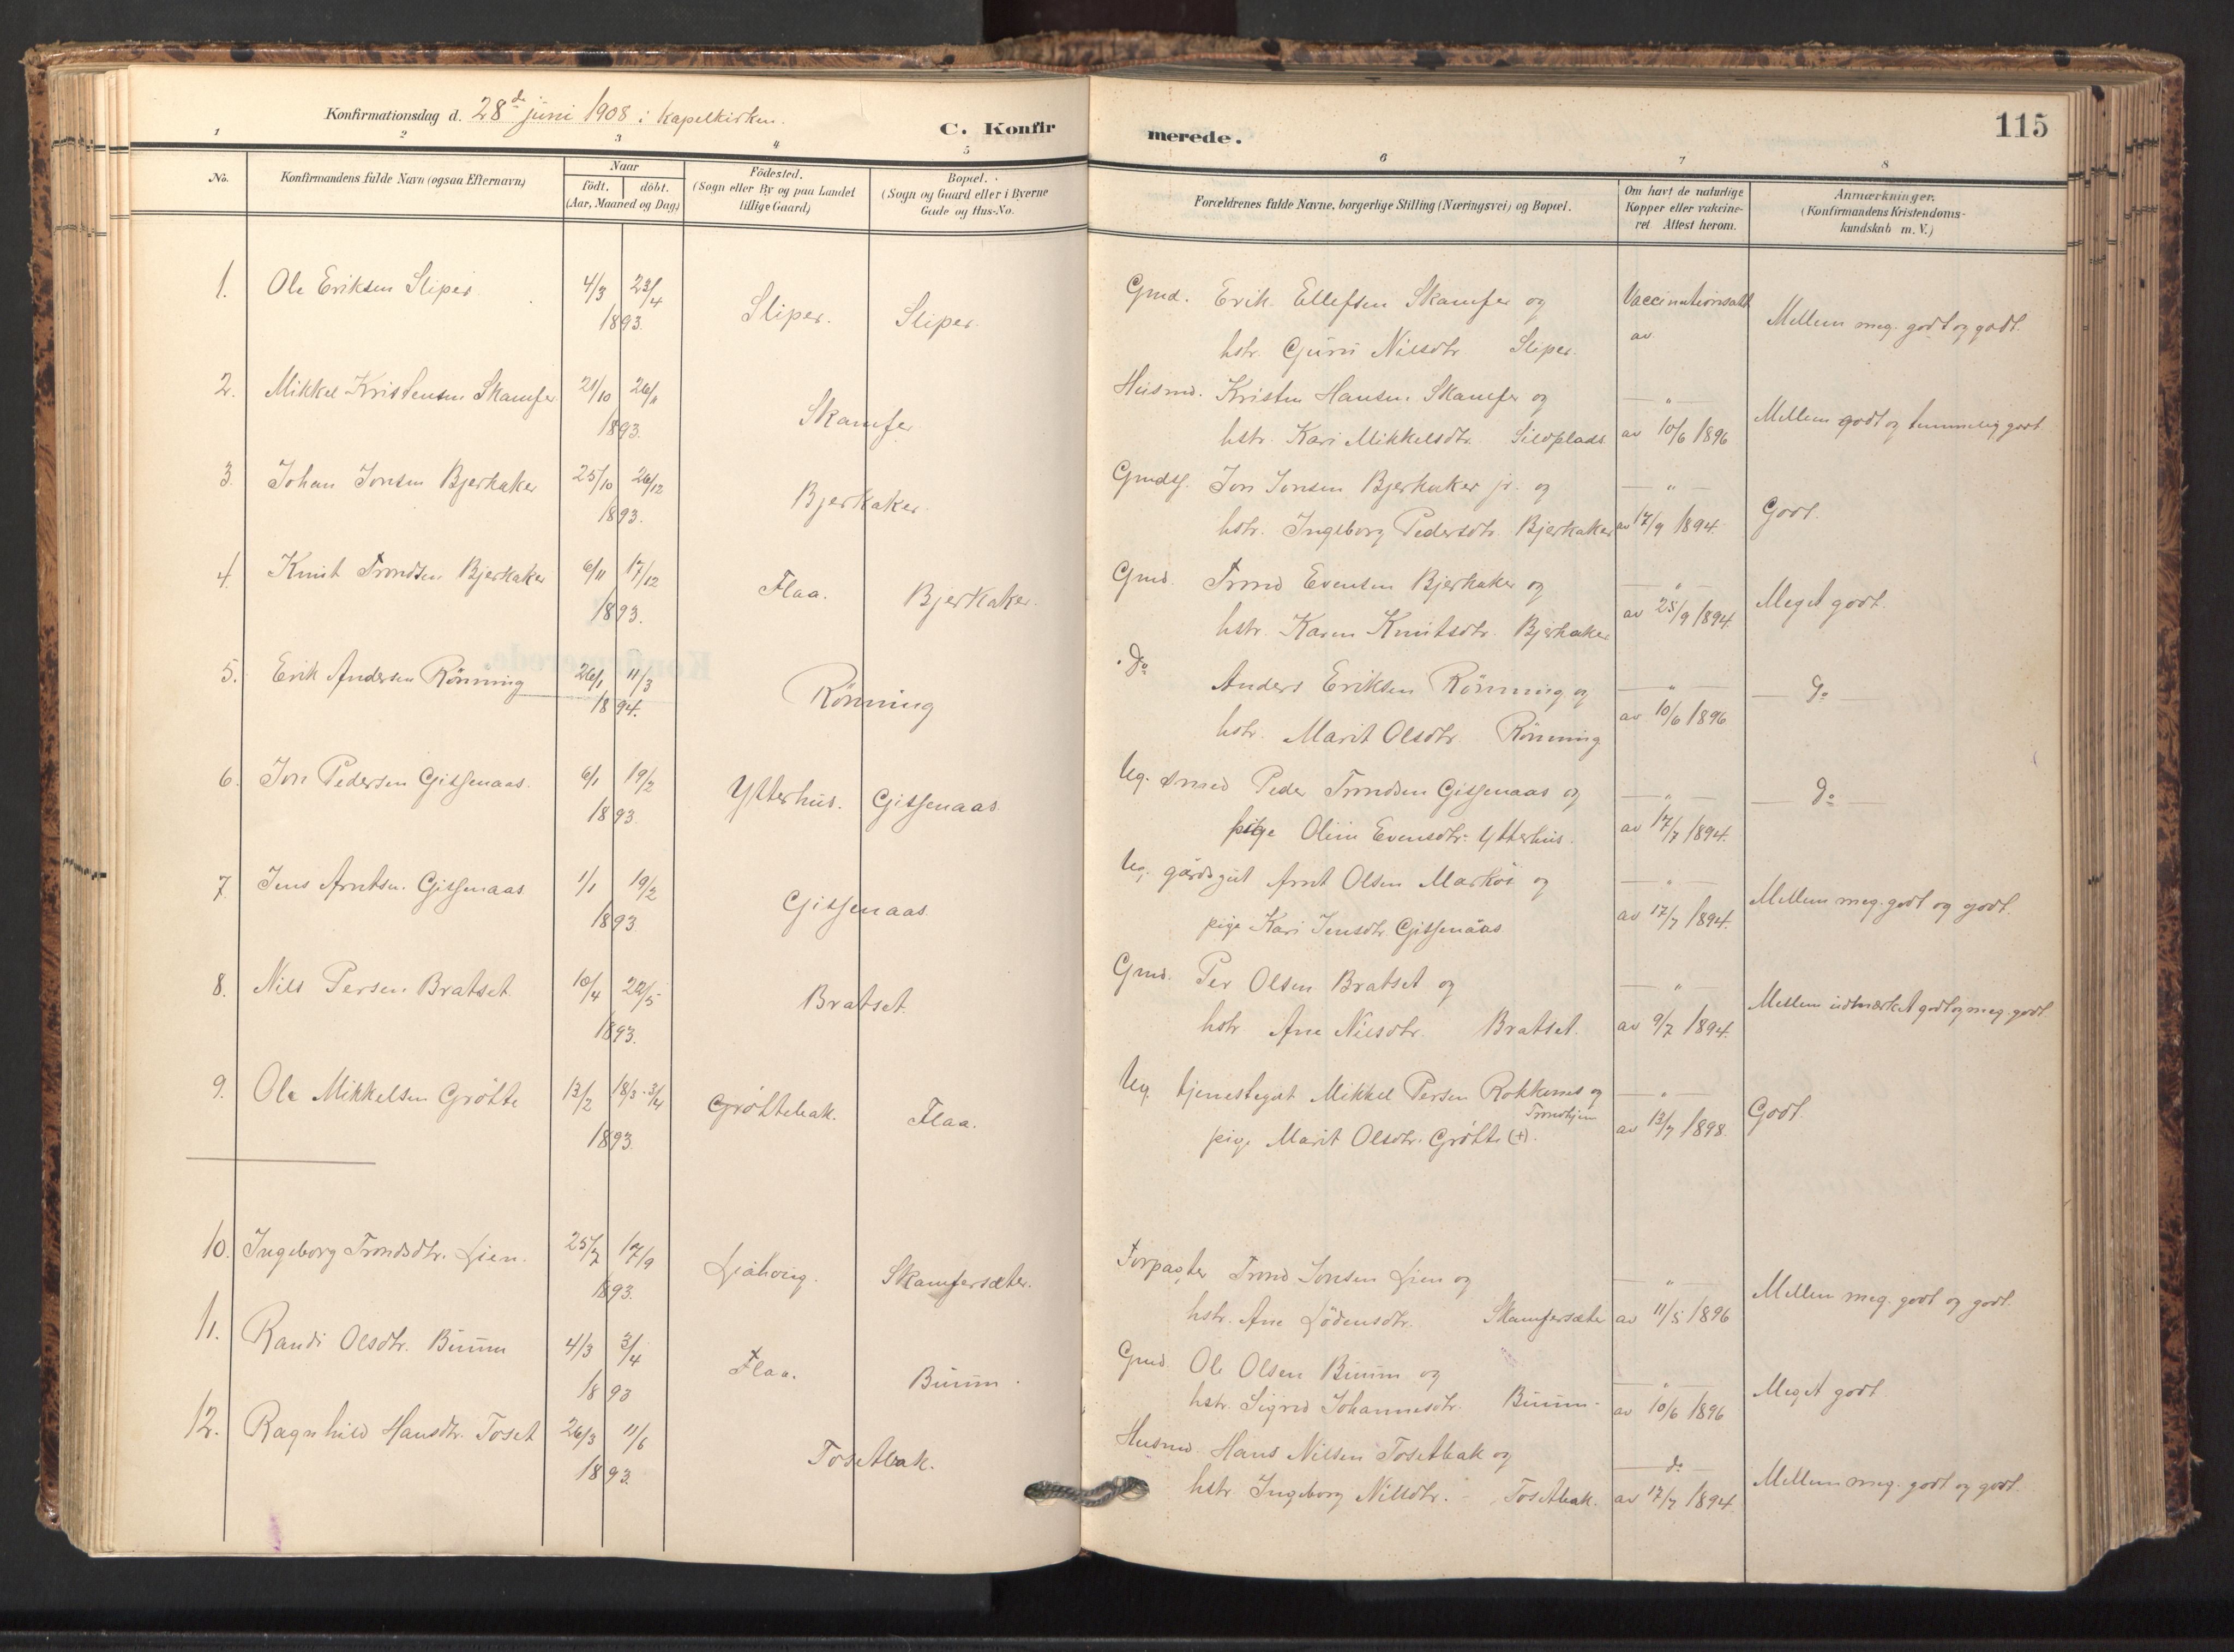 Konfirmationsdag d. 28de juni 1908 i Kapelkirken.
C. Konfirmerede.
115
1 2 3 4 5 6 7 8
No.
Konfirmandens fulde Navn (ogsaa Efternavn)
Naar
födt. döbt.
(Aar, Maaned og Dag)
Födested.
(Sogn eller By og paa Landet
tillige Gaard)
Bopæl.
(Sogn og Gaard eller i Byerne
Gade og Hus-No.
Forældrenes fulde Navne, borgerlige Stilling (Næringsvei) og Bopæl.
Om havt de naturlige
Kopper eller vakcine-
ret Attest herom.
Anmærkninger.
(Konfirmandens Kristendoms-
kundskab m. V.)
1. Ole Eriksen Sliper 4/3 23/4 Sliper. Sliper. Gmd. Erik Ellefsen Skamfer og Vaccinationsatt Mellem meg. godt og godt.
1893. hstr. Guru Nilsdtr Sliper. av
2. Mikkel Kristensen Skamfer 21/10 26/11 Skamfer Husmd. Kristen Hansen Skamfer og — " — Mellem godt og temmelig godt
1893. hstr. Kari Mikkelsdtr. Silvplads av 10/6 1896
3. Johan Jonsen Bjerkaker 25/10 26/12 Bjerkaker. Gmdsf. Jon Jonsen Bjerkaker jr. og — " — Godt.
1893. hstr. Ingeborg Pedersdtr. Bjerkaker av 17/9 1894.
4. Knut Trondsen Bjerkaker 6/11 17/12 Flaa. Bjerkaker. Gmd. Trond Evensen Bjerkaker og — " — Meget godt.
1893. hstr. Karen Knutsdtr. Bjerkaker av 25/9 1894.
5. Erik Andersen Rönning 26/1 11/3 Rönning do Anders Eriksen Rönning og — " — — do —
1894. hstr. Marit Olsdtr. Rönning av 10/6 1896
6. Jon Pedersen Gissenaas. 6/1 19/2 Ytterhus. Gissenaas Ug. smed Peder Trondsen Gissenaas og — " — — do —
1893. pige Oline Evensdtr. Ytterhus. av 17/7 1894.
7. Jens Arntsen. Gissenaas 1/1 19/2 Gissenaas. Ug. gårdsgut Arnt Olsen Markøi og — " — Mellem meg. godt og godt.
1893 pige Kari Jensdtr. Gissenaas av 17/7 1894.
8. Nils Persen Bratset. 10/4 22/5 Bratset. Gmd. Per Olsen Bratset og — " — Mellem udmærket godt og meg. godt.
1893. hstr Ane Nilsdtr. Bratset. av 9/7 1894.
9. Ole Mikkelsen Grötte 13/2 18/3-3/4 Gröttebak. Flaa. Ug. tjenestegut Mikkel Persen Rokkones og — " — Godt.
Trondhjem
1893. pige Marit Olsdtr. Grötte (+). av 13/7 1898.
10. Ingeborg Trondsdtr. Lien. 25/7 17/9 Skamfersæter. Forpagter Trond Jonsen Lien og — " — Mellem meg. godt og godt.
1893. hstr. Ane Lödensdtr. Skamfersæter av 11/5 1896
11. Randi Olsdtr. Buum 4/3 3/4 Flaa. Buum. Gmd Ole Olsen Buum og — " — Meget godt.
1893 hstr. Sigrid Johannesdtr. Buum. av 10/6 1896
12. Ragnhild Hansdtr. Toset 26/3 11/6 Tosetbak. Husmd. Hans Nilsen Tosetbak og — do — Mellem meg. godt og godt.
1893. hstr Ingeborg Nilsdtr. Tosetbak. av 17/7 1894